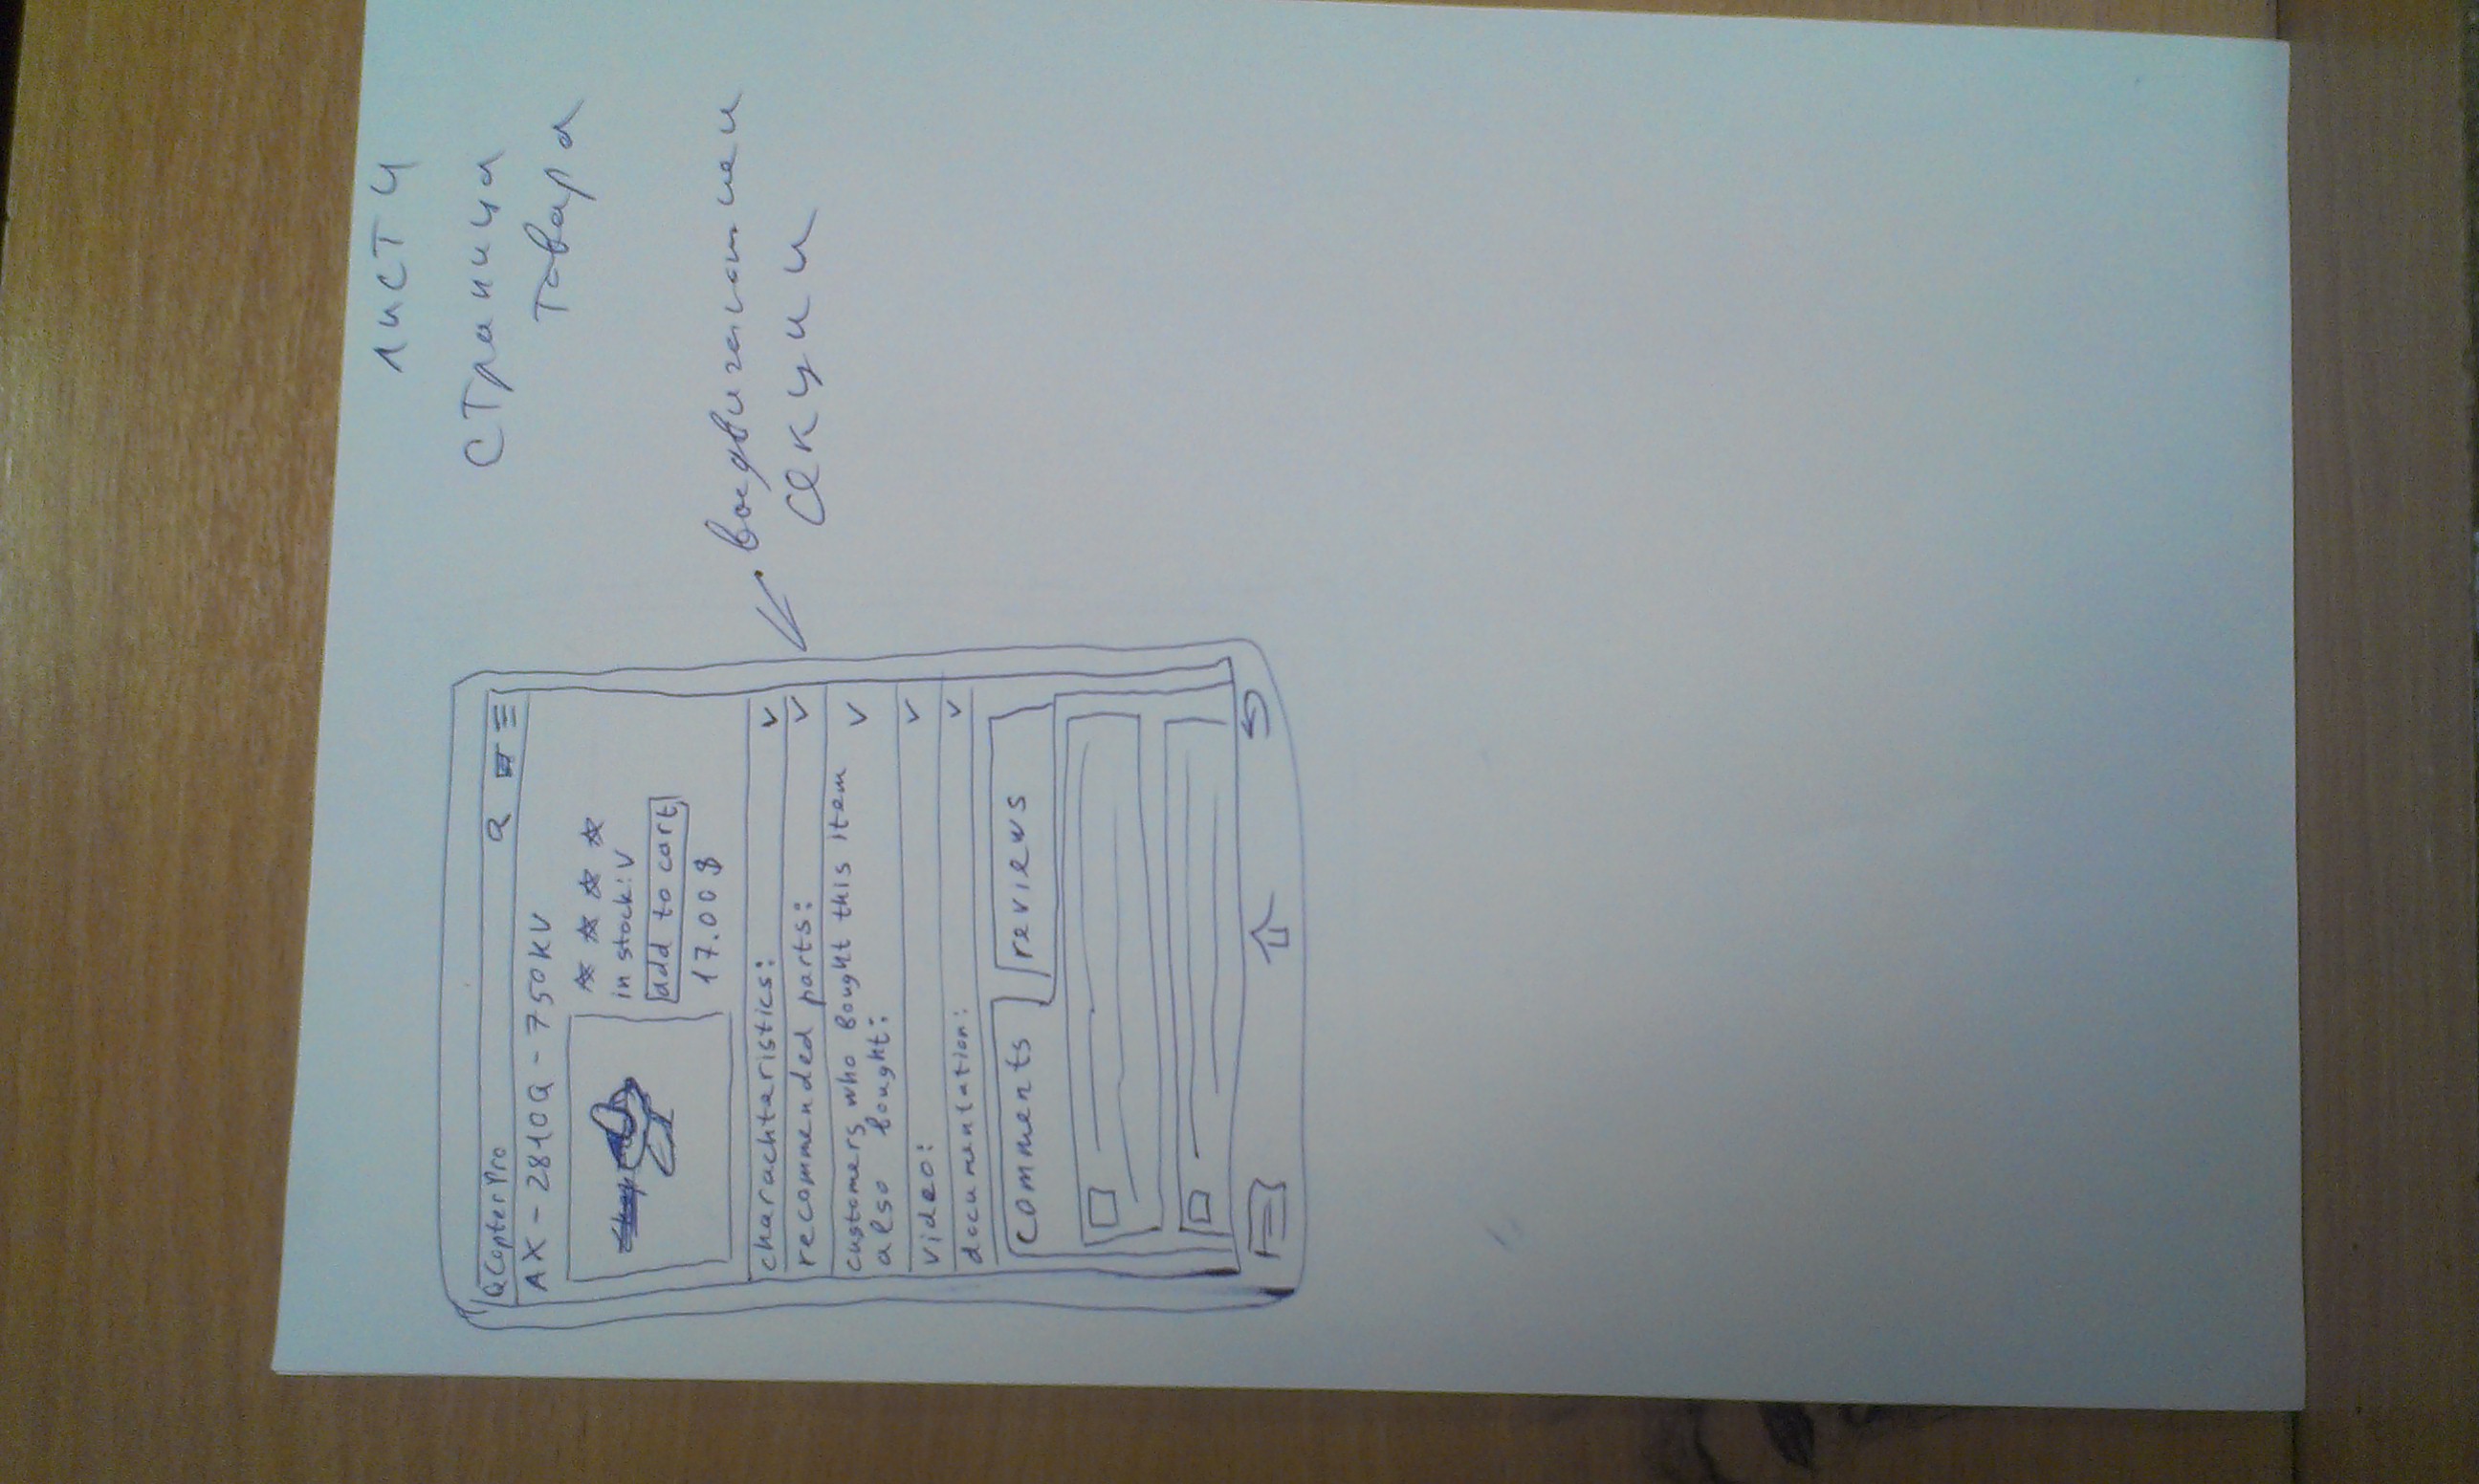 лист 4
страница
товара
QCopterPro
AX - 2810Q - 750KV
in stock: V
add to cart
17.00$
charachteristics:
recommended parts:
customers who bought this item
also bought:
video:
documentation:
comments
reviews
выдвигающиеся
секции